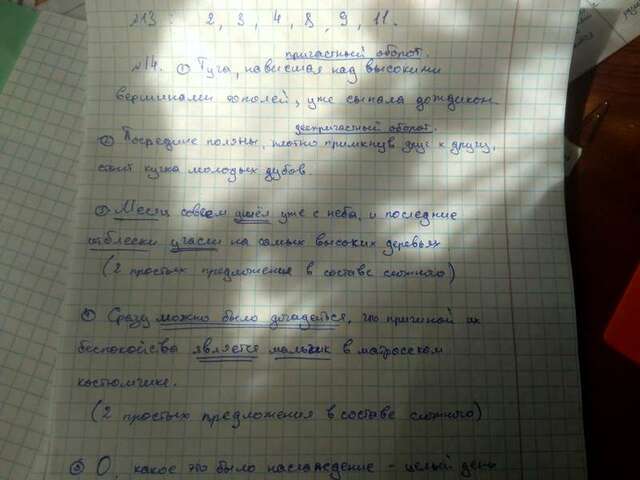 №13: 2, 3, 4, 8, 9, 11.
причастный оборот.
№14. ① Туча, нависшая над высокими
вершинами тополей, уже сыпала дождиком
деепричастный оборот.
② Посредине поляны, плотно примкнув друг к другу,
стоит кучка молодых дубов.
③ Месяц совсем ушёл уже с неба, и последние
отблески угасли на самых высоких деревьях
(2 простых предложения в составе сложного)
④ Сразу можно было догадаться, что причиной их
беспокойства является мальчик в матросском
костюмчике.
(2 простых предложения в составе сложного)
⑤ О, какое это было наслаждение - целый день